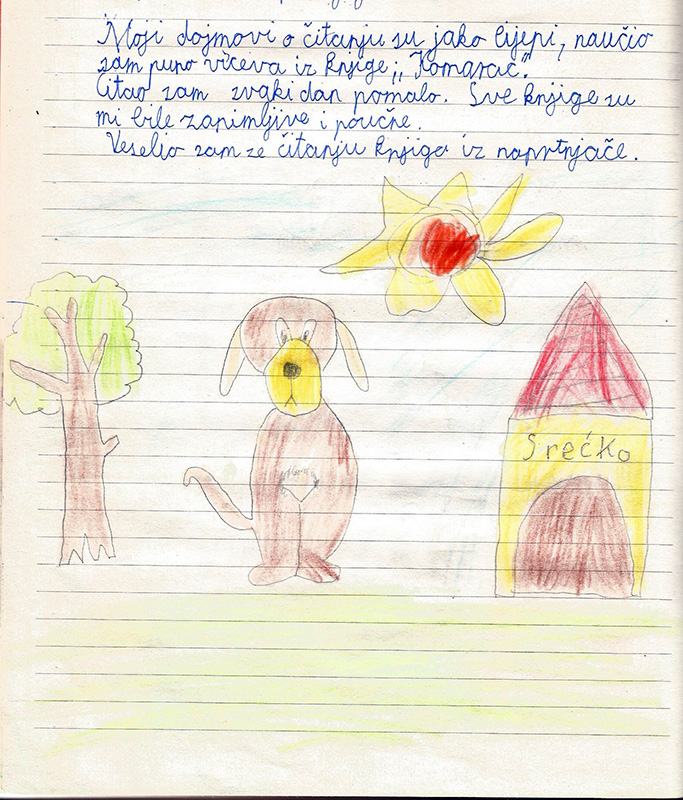 Moji dojmovi o čitanju su jako lijepi, naučio
sam puno viceva iz knjige „Komarac".
Čitao sam svaki dan pomalo. Sve knjige su
mi bile zanimljive i poučne.
Veselio sam se čitanju knjiga iz naprtnjače.
Srećko